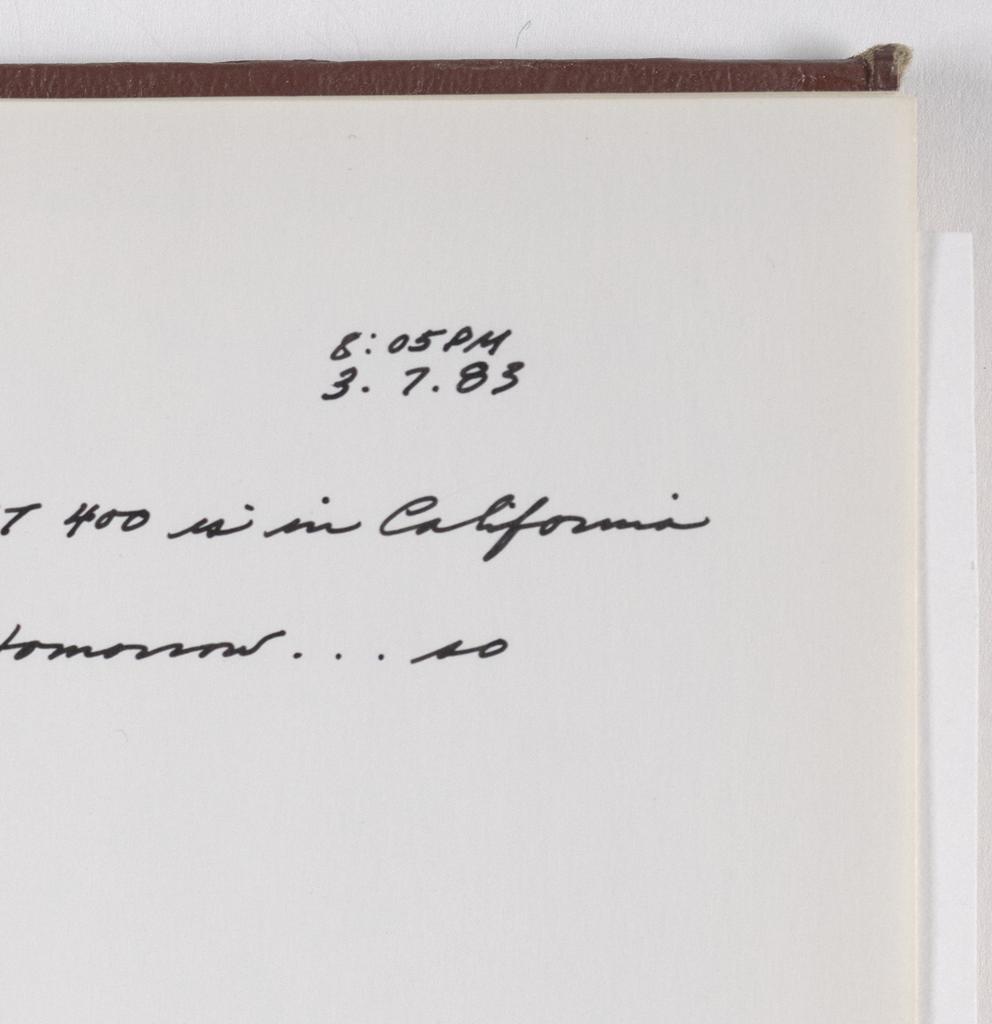 8:05PM
3. 7. 83
T 400 is in California
tomorrow... so